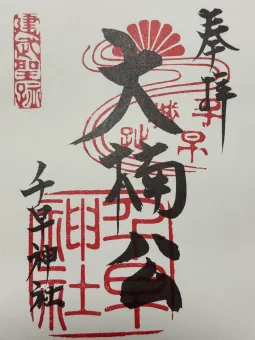 奉拝
建武聖跡
千早城址
大楠公
千早神社
千早神社